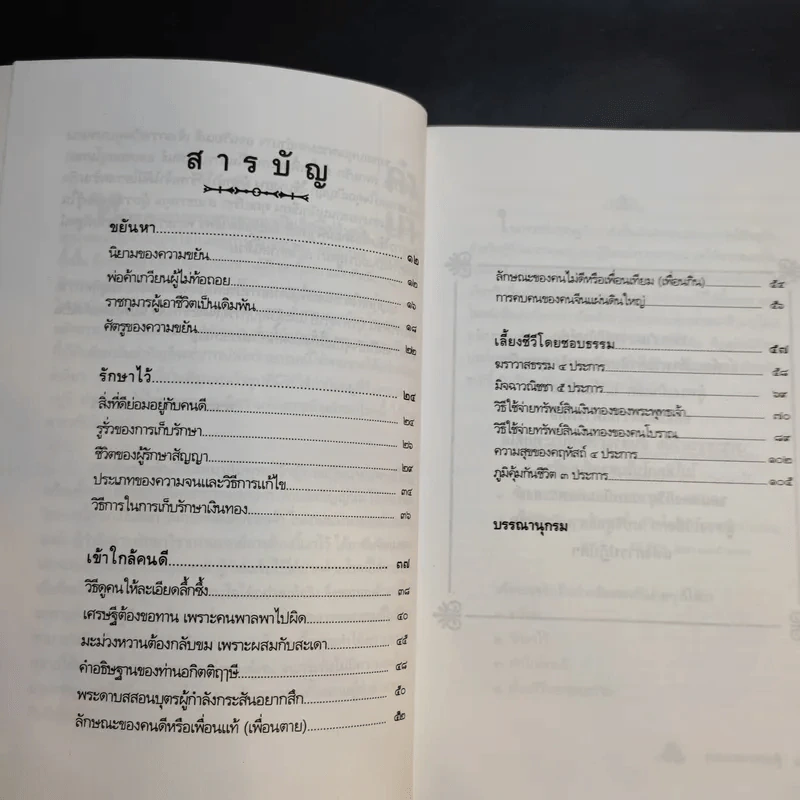 สารบัญ
ขยันหา ๑๒
นิยามของความขยัน ๑๒
พ่อค้าเกวียนผู้ไม่ท้อถอย ๑๖
ราชกุมารผู้เอาชีวิตเป็นเดิมพัน ๑๘
ศัตรูของความขยัน ๒๒
รักษาไว้ ๒๔
สิ่งที่ดีย่อมอยู่กับคนดี ๒๔
รูรั่วของการเก็บรักษา ๒๖
ชีวิตของผู้รักษาสัญญา ๒๙
ประเภทของความจนและวิธีการแก้ไข ๓๔
วิธีการในการเก็บรักษาเงินทอง ๓๖
เข้าใกล้คนดี ๓๗
วิธีดูคนให้ละเอียดลึกซึ้ง ๓๘
เศรษฐีต้องขอทาน เพราะคนพาลพาไปผิด ๔๐
มะม่วงหวานต้องกลับขม เพราะผสมกับสะเดา ๔๕
คำอธิษฐานของท่านอกิตติฤๅษี ๔๘
พระดาบสสอนบุตรผู้กำลังกระสันอยากสึก ๕๐
ลักษณะของคนดีหรือเพื่อนแท้ (เพื่อนตาย) ๕๒
ลักษณะของคนไม่ดีหรือเพื่อนเทียม (เพื่อนกิน) ๕๔
การคบคนของคนจีนแผ่นดินใหญ่ ๕๖
เลี้ยงชีวีโดยชอบธรรม ๕๗
ฆราวาสธรรม ๔ ประการ ๕๘
มิจฉาวณิชชา ๕ ประการ ๖๙
วิธีใช้จ่ายทรัพย์สินเงินทองของพระพุทธเจ้า ๗๐
วิธีใช้จ่ายทรัพย์สินเงินทองของคนโบราณ ๘๙
ความสุขของคฤหัสถ์ ๔ ประการ ๑๐๒
ภูมิคุ้มกันชีวิต ๓ ประการ ๑๐๕
บรรณานุกรม